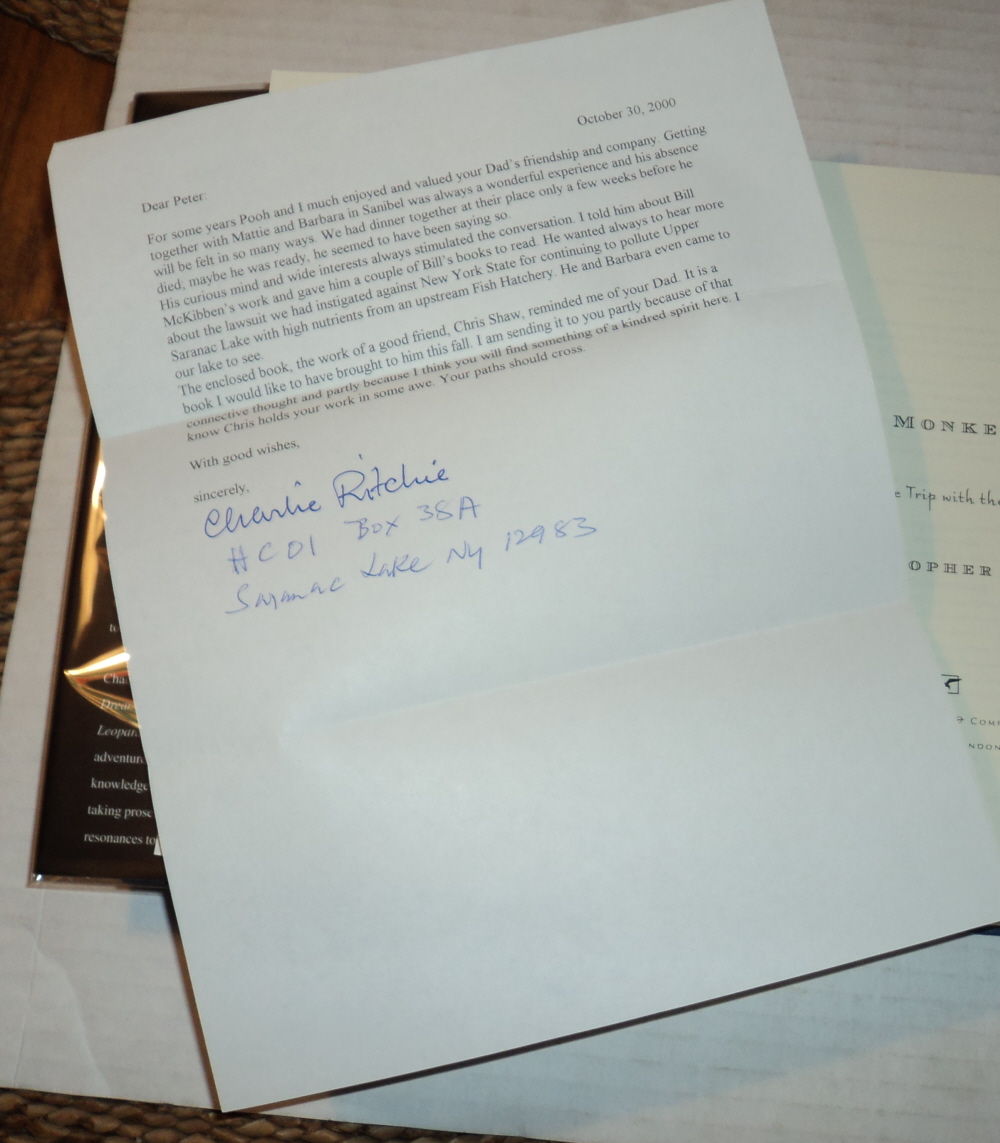 October 30, 2000
Dear Peter:
For some years Pooh and I much enjoyed and valued your Dad's friendship and company. Getting
together with Mattie and Barbara in Sanibel was always a wonderful experience and his absence
will be felt in so many ways. We had dinner together at their place only a few weeks before he
died, maybe he was ready, he seemed to have been saying so.
His curious mind and wide interests always stimulated the conversation. I told him about Bill
McKibben's work and gave him a couple of Bill's books to read. He wanted always to hear more
about the lawsuit we had instigated against New York State for continuing to pollute Upper
Saranac Lake with high nutrients from an upstream Fish Hatchery. He and Barbara even came to
our lake to see.
The enclosed book, the work of a good friend, Chris Shaw, reminded me of your Dad. It is a
book I would like to have brought to him this fall. I am sending it to you partly because of that
connective thought and partly because I think you will find something of a kindred spirit here. I
know Chris holds your work in some awe. Your paths should cross.
With good wishes,
sincerely,
Charlie Ritchie
HC01 Box 38A
Saranac Lake NY 12983
Cha
Drea
Leopar
adventur
knowledge
taking prose
resonances to
MONKE
e Trip with the
OPHER
& COM
NDON